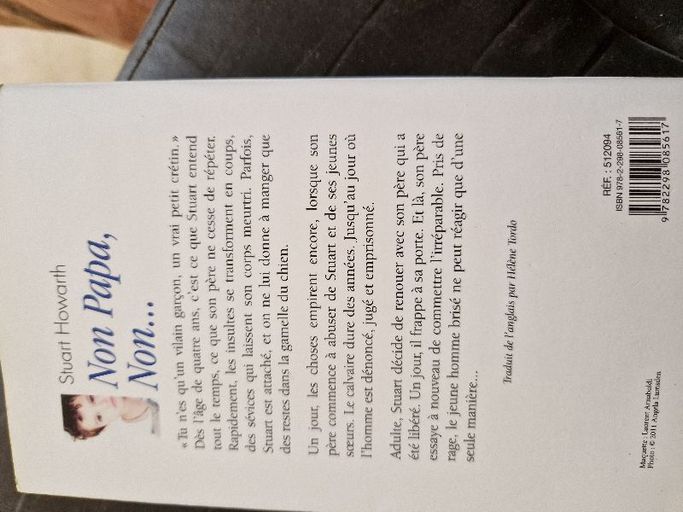 Stuart Howarth
Non Papa,
Non...
« Tu n'es qu'un vilain garçon, un vrai petit crétin. »
Dès l'âge de quatre ans, c'est ce que Stuart entend
tout le temps, ce que son père ne cesse de répéter.
Rapidement, les insultes se transforment en coups,
des sévices qui laissent son corps meurtri. Parfois,
Stuart est attaché, et on ne lui donne à manger que
des restes dans la gamelle du chien.
Un jour, les choses empirent encore, lorsque son
père commence à abuser de Stuart et de ses jeunes
sœurs. Le calvaire dure des années. Jusqu'au jour où
l'homme est dénoncé, jugé et emprisonné.
Adulte, Stuart décide de renouer avec son père qui a
été libéré. Un jour, il frappe à sa porte. Et là, son père
essaye à nouveau de commettre l'irréparable. Pris de
rage, le jeune homme brisé ne peut réagir que d'une
seule manière...
Traduit de l'anglais par Hélène Tordo
Maquette : Laurent
Photo : © 2011 Angela
RÉF. : 512094
ISBN 978-2-298-08561-7
9 782298 085617